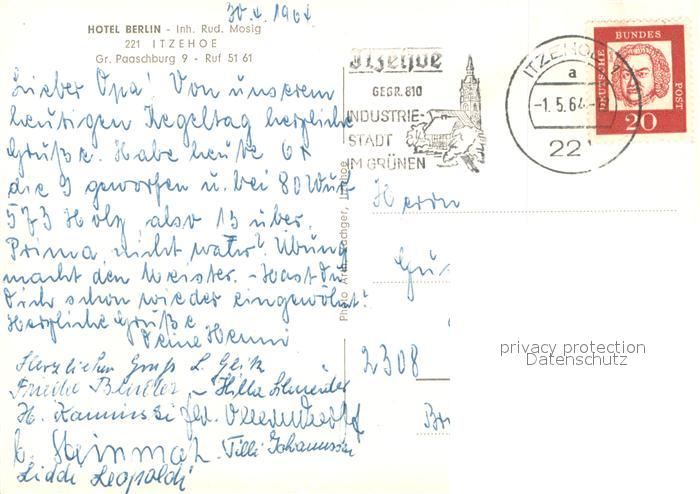 30.4.1964
HOTEL BERLIN - Inh. Rud. Mosig
221 ITZEHOE
Gr. Paaschburg 9 - Ruf 51 61
Lieber Opa! Von unserem
heutigen Kegeltag herzliche
Grüße. Habe heute 6x
die 9 geworfen u. bei 80 Wurf
573 Holz, also 13 über.
Prima, nicht wahr? Übung
macht den Meister. - Hast Du
Dich schon wieder eingewöhnt?
Herzliche Grüße
Deine Henni
Herzlichen Gruß L.
Frieda - Hilla Schneider
H. Kaminski
Steinmatz Tilli Johannsen
Liddi Leopoldi
Photo Arth. Rochger, Itzehoe
Itzehoe
GEGR. 810
INDUSTRIE-
STADT
IM GRÜNEN
ITZEHOE
a
-1.5.64-
22
DEUTSCHE BUNDESPOST
20
Herrn
2308
privacy protection
Datenschutz